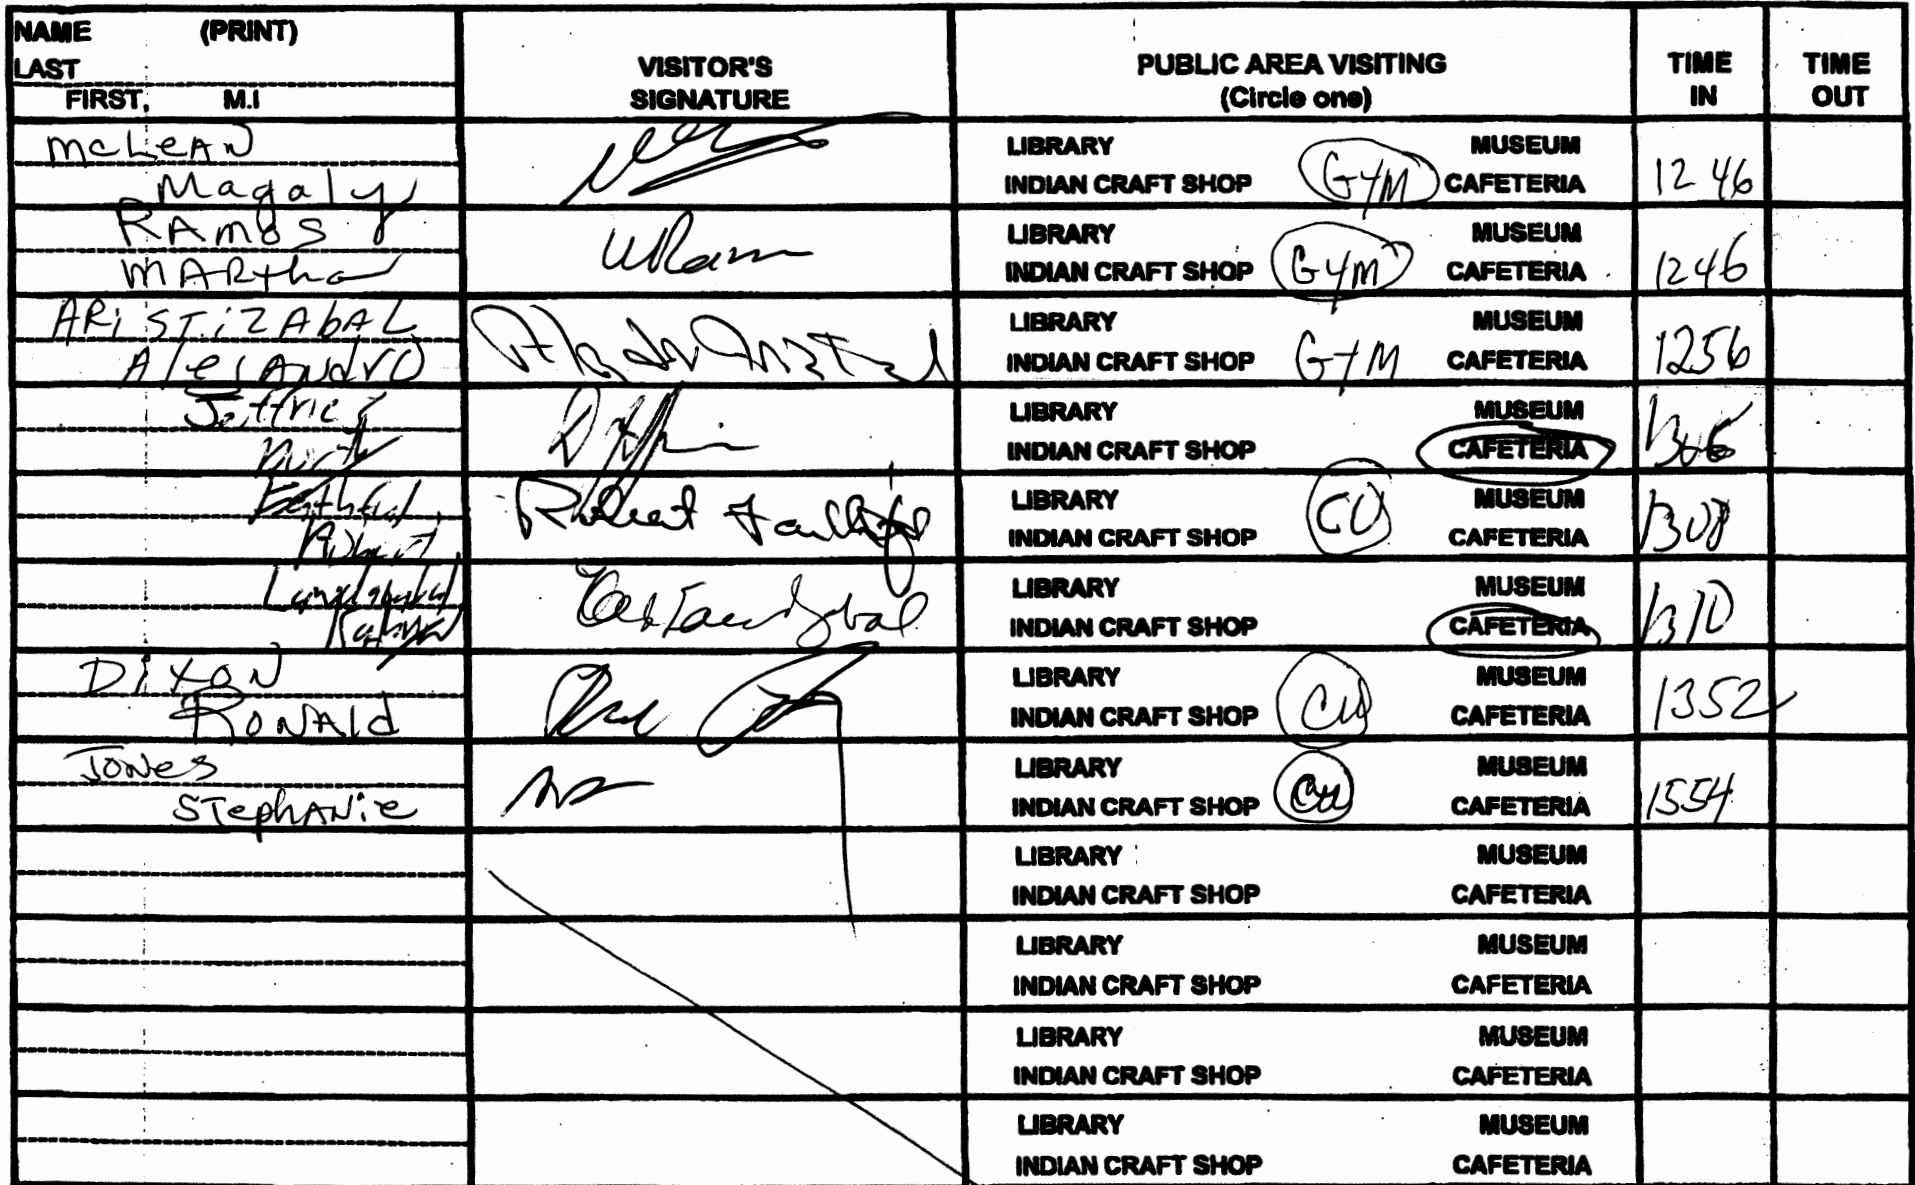 NAME (PRINT)
LAST
FIRST, M.I
VISITOR'S
SIGNATURE
PUBLIC AREA VISITING
(Circle one)
TIME
IN
TIME
OUT
McLeAN
Magaly
LIBRARY MUSEUM
INDIAN CRAFT SHOP GYM CAFETERIA
1246
RAMOS
MARtha
LIBRARY MUSEUM
INDIAN CRAFT SHOP GYM CAFETERIA
1246
ARiSTiZAbAL
AleJANdrO
LIBRARY MUSEUM
INDIAN CRAFT SHOP GYM CAFETERIA
1256
LIBRARY MUSEUM
INDIAN CRAFT SHOP CAFETERIA
Robert
LIBRARY CU MUSEUM
INDIAN CRAFT SHOP CAFETERIA
1308
LIBRARY MUSEUM
INDIAN CRAFT SHOP CAFETERIA
1310
DixoN
RoNAld
LIBRARY MUSEUM
INDIAN CRAFT SHOP CU CAFETERIA
1352
JoNes
STephANie
LIBRARY MUSEUM
INDIAN CRAFT SHOP CU CAFETERIA
1554
LIBRARY MUSEUM
INDIAN CRAFT SHOP CAFETERIA
LIBRARY MUSEUM
INDIAN CRAFT SHOP CAFETERIA
LIBRARY MUSEUM
INDIAN CRAFT SHOP CAFETERIA
LIBRARY MUSEUM
INDIAN CRAFT SHOP CAFETERIA